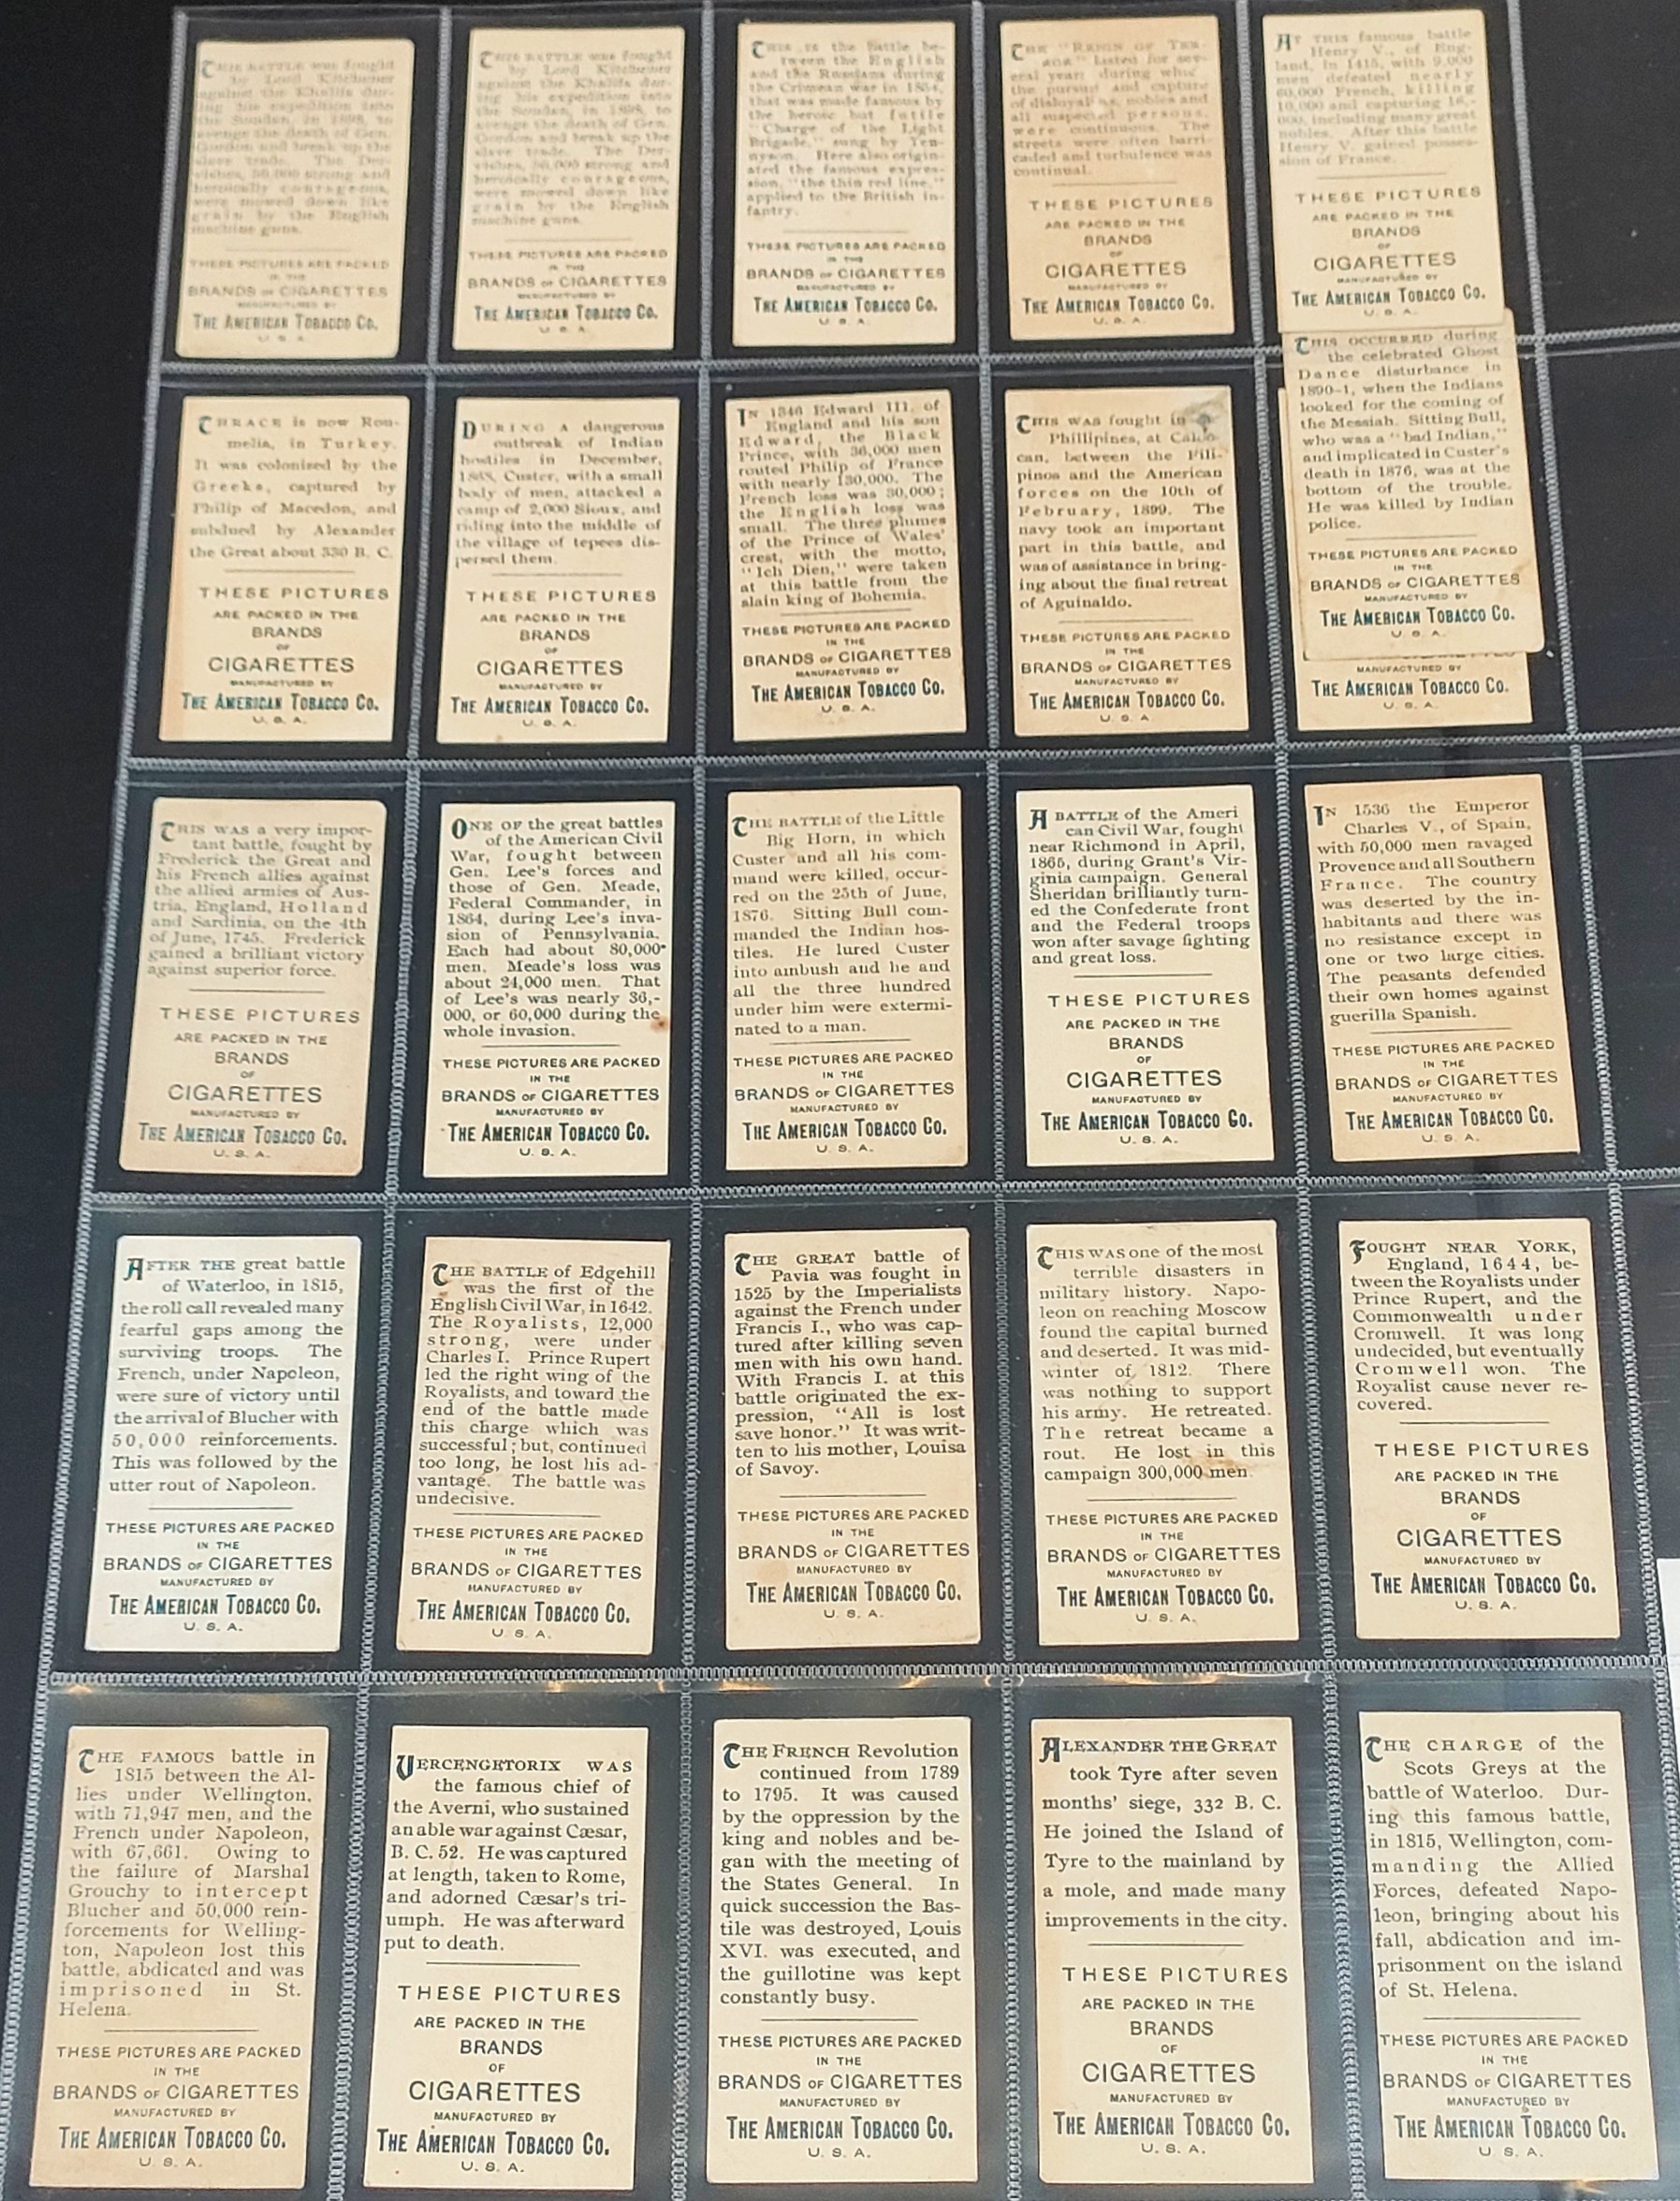 THIS BATTLE was fought
by Lord Kitchener
against the Khalifa dur-
ing his expedition into
the Soudan, in 1898, to
avenge the death of Gen.
Gordon and break up the
slave trade. The Der-
vishes, 50,000 strong and
heroically courageous,
were mowed down like
grain by the English
machine guns.
THESE PICTURES ARE PACKED
IN THE
BRANDS OF CIGARETTES
MANUFACTURED BY
THE AMERICAN TOBACCO CO.
U. S. A.
THIS BATTLE was fought
by Lord Kitchener
against the Khalifa dur-
ing his expedition into
the Soudan, in 1898, to
avenge the death of Gen.
Gordon and break up the
slave trade. The Der-
vishes, 50,000 strong and
heroically courageous,
were mowed down like
grain by the English
machine guns.
THESE PICTURES ARE PACKED
IN THE
BRANDS OF CIGARETTES
MANUFACTURED BY
THE AMERICAN TOBACCO CO.
U. S. A.
THIS IS the battle be-
tween the English
and the Russians during
the Crimean war in 1854,
that was made famous by
the heroic but futile
"Charge of the Light
Brigade," sung by Ten-
nyson. Here also origin-
ated the famous expres-
sion, "the thin red line,"
applied to the British in-
fantry.
THESE PICTURES ARE PACKED
IN THE
BRANDS OF CIGARETTES
MANUFACTURED BY
THE AMERICAN TOBACCO CO.
U. S. A.
THE "REIGN OF TER-
ROR" lasted for sev-
eral years during whic
the pursuit and capture
of disloyal nobles and
all suspected persons,
were continuous. The
streets were often barri-
caded and turbulence was
continual.
THESE PICTURES
ARE PACKED IN THE
BRANDS
OF
CIGARETTES
MANUFACTURED BY
THE AMERICAN TOBACCO CO.
U. S. A.
AT THIS famous battle
Henry V., of Eng-
land, in 1415, with 9,000
men defeated nearly
60,000 French, killing
10,000 and capturing 16,-
000, including many great
nobles. After this battle
Henry V. gained posses-
sion of France.
THESE PICTURES
ARE PACKED IN THE
BRANDS
OF
CIGARETTES
MANUFACTURED BY
THE AMERICAN TOBACCO CO.
U. S. A.
THRACE is now Rou-
melia, in Turkey.
It was colonized by the
Greeks, captured by
Philip of Macedon, and
subdued by Alexander
the Great about 330 B. C.
THESE PICTURES
ARE PACKED IN THE
BRANDS
OF
CIGARETTES
MANUFACTURED BY
THE AMERICAN TOBACCO CO.
U. S. A.
DURING A dangerous
outbreak of Indian
hostiles in December,
1868, Custer, with a small
body of men, attacked a
camp of 2,000 Sioux, and
riding into the middle of
the village of tepees dis-
persed them.
THESE PICTURES
ARE PACKED IN THE
BRANDS
OF
CIGARETTES
MANUFACTURED BY
THE AMERICAN TOBACCO CO.
U. S. A.
IN 1346 Edward III. of
England and his son
Edward, the Black
Prince, with 36,000 men
routed Philip of France
with nearly 130,000. The
French loss was 30,000;
the English loss was
small. The three plumes
of the Prince of Wales'
crest, with the motto,
"Ich Dien," were taken
at this battle from the
slain king of Bohemia.
THESE PICTURES ARE PACKED
IN THE
BRANDS OF CIGARETTES
MANUFACTURED BY
THE AMERICAN TOBACCO CO.
U. S. A.
THIS WAS fought in
Phillipines, at Caloo-
can, between the Fili-
pinos and the American
forces on the 10th of
February, 1899. The
navy took an important
part in this battle, and
was of assistance in bring-
ing about the final retreat
of Aguinaldo.
THESE PICTURES ARE PACKED
IN THE
BRANDS OF CIGARETTES
MANUFACTURED BY
THE AMERICAN TOBACCO CO.
U. S. A
THIS OCCURRED during
the celebrated Ghost
Dance disturbance in
1890-1, when the Indians
looked for the coming of
the Messiah. Sitting Bull,
who was a "bad Indian,"
and implicated in Custer's
death in 1876, was at the
bottom of the trouble.
He was killed by Indian
police.
THESE PICTURES ARE PACKED
IN THE
BRANDS OF CIGARETTES
MANUFACTURED BY
THE AMERICAN TOBACCO CO.
U. S. A.
MANUFACTURED BY
THE AMERICAN TOBACCO CO.
U. S. A.
THIS WAS a very impor-
tant battle, fought by
Frederick the Great and
his French allies against
the allied armies of Aus-
tria, England, Holland
and Sardinia, on the 4th
of June, 1745. Frederick
gained a brilliant victory
against superior force.
THESE PICTURES
ARE PACKED IN THE
BRANDS
OF
CIGARETTES
MANUFACTURED BY
THE AMERICAN TOBACCO CO.
U. S. A.
ONE OF the great battles
of the American Civil
War, fought between
Gen. Lee's forces and
those of Gen. Meade,
Federal Commander, in
1864, during Lee's inva-
sion of Pennsylvania.
Each had about 80,000
men. Meade's loss was
about 24,000 men. That
of Lee's was nearly 36,-
000, or 60,000 during the
whole invasion.
THESE PICTURES ARE PACKED
IN THE
BRANDS OF CIGARETTES
MANUFACTURED BY
THE AMERICAN TOBACCO CO.
U. S. A.
THE BATTLE of the Little
Big Horn, in which
Custer and all his com-
mand were killed, occur-
red on the 25th of June,
1876. Sitting Bull com-
manded the Indian hos-
tiles. He lured Custer
into ambush and he and
all the three hundred
under him were extermi-
nated to a man.
THESE PICTURES ARE PACKED
IN THE
BRANDS OF CIGARETTES
MANUFACTURED BY
THE AMERICAN TOBACCO CO.
U. S. A.
A BATTLE of the Ameri
can Civil War, fought
near Richmond in April,
1865, during Grant's Vir-
ginia campaign. General
Sheridan brilliantly turn-
ed the Confederate front
and the Federal troops
won after savage fighting
and great loss.
THESE PICTURES
ARE PACKED IN THE
BRANDS
OF
CIGARETTES
MANUFACTURED BY
THE AMERICAN TOBACCO CO.
U. S. A.
IN 1536 the Emperor
Charles V., of Spain,
with 50,000 men ravaged
Provence and all Southern
France. The country
was deserted by the in-
habitants and there was
no resistance except in
one or two large cities.
The peasants defended
their own homes against
guerilla Spanish.
THESE PICTURES ARE PACKED
IN THE
BRANDS OF CIGARETTES
MANUFACTURED BY
THE AMERICAN TOBACCO CO.
U. S. A.
AFTER THE great battle
of Waterloo, in 1815,
the roll call revealed many
fearful gaps among the
surviving troops. The
French, under Napoleon,
were sure of victory until
the arrival of Blucher with
50,000 reinforcements.
This was followed by the
utter rout of Napoleon.
THESE PICTURES ARE PACKED
IN THE
BRANDS OF CIGARETTES
MANUFACTURED BY
THE AMERICAN TOBACCO CO.
U. S. A.
THE BATTLE of Edgehill
was the first of the
English Civil War, in 1642.
The Royalists, 12,000
strong, were under
Charles I. Prince Rupert
led the right wing of the
Royalists, and toward the
end of the battle made
this charge which was
successful; but, continued
too long, he lost his ad-
vantage. The battle was
undecisive.
THESE PICTURES ARE PACKED
IN THE
BRANDS OF CIGARETTES
MANUFACTURED BY
THE AMERICAN TOBACCO CO.
U. S. A.
THE GREAT battle of
Pavia was fought in
1525 by the Imperialists
against the French under
Francis I., who was cap-
tured after killing seven
men with his own hand.
With Francis I. at this
battle originated the ex-
pression, "All is lost
save honor." It was writ-
ten to his mother, Louisa
of Savoy.
THESE PICTURES ARE PACKED
IN THE
BRANDS OF CIGARETTES
MANUFACTURED BY
THE AMERICAN TOBACCO CO.
U. S. A.
THIS WAS one of the most
terrible disasters in
military history. Napo-
leon on reaching Moscow
found the capital burned
and deserted. It was mid-
winter of 1812. There
was nothing to support
his army. He retreated.
The retreat became a
rout. He lost in this
campaign 300,000 men
THESE PICTURES ARE PACKED
IN THE
BRANDS OF CIGARETTES
MANUFACTURED BY
THE AMERICAN TOBACCO CO.
U. S. A.
FOUGHT NEAR YORK,
England, 1644, be-
tween the Royalists under
Prince Rupert, and the
Commonwealth under
Cromwell. It was long
undecided, but eventually
Cromwell won. The
Royalist cause never re-
covered.
THESE PICTURES
ARE PACKED IN THE
BRANDS
OF
CIGARETTES
MANUFACTURED BY
THE AMERICAN TOBACCO CO.
U. S. A.
THE FAMOUS battle in
1815 between the Al-
lies under Wellington,
with 71,947 men, and the
French under Napoleon,
with 67,661. Owing to
the failure of Marshal
Grouchy to intercept
Blucher and 50,000 rein-
forcements for Welling-
ton, Napoleon lost this
battle, abdicated and was
imprisoned in St.
Helena.
THESE PICTURES ARE PACKED
IN THE
BRANDS OF CIGARETTES
MANUFACTURED BY
THE AMERICAN TOBACCO CO.
U. S. A.
VERCENGETORIX WAS
the famous chief of
the Averni, who sustained
an able war against Cæsar,
B. C. 52. He was captured
at length, taken to Rome,
and adorned Cæsar's tri-
umph. He was afterward
put to death.
THESE PICTURES
ARE PACKED IN THE
BRANDS
OF
CIGARETTES
MANUFACTURED BY
THE AMERICAN TOBACCO CO.
U. S. A.
THE FRENCH Revolution
continued from 1789
to 1795. It was caused
by the oppression by the
king and nobles and be-
gan with the meeting of
the States General. In
quick succession the Bas-
tile was destroyed, Louis
XVI. was executed, and
the guillotine was kept
constantly busy.
THESE PICTURES ARE PACKED
IN THE
BRANDS OF CIGARETTES
MANUFACTURED BY
THE AMERICAN TOBACCO CO.
U. S. A.
ALEXANDER THE GREAT
took Tyre after seven
months' siege, 332 B. C.
He joined the Island of
Tyre to the mainland by
a mole, and made many
improvements in the city.
THESE PICTURES
ARE PACKED IN THE
BRANDS
OF
CIGARETTES
MANUFACTURED BY
THE AMERICAN TOBACCO CO.
U. S. A.
THE CHARGE of the
Scots Greys at the
battle of Waterloo. Dur-
ing this famous battle,
in 1815, Wellington, com-
manding the Allied
Forces, defeated Napo-
leon, bringing about his
fall, abdication and im-
prisonment on the island
of St. Helena.
THESE PICTURES ARE PACKED
IN THE
BRANDS OF CIGARETTES
MANUFACTURED BY
THE AMERICAN TOBACCO CO.
U. S. A.